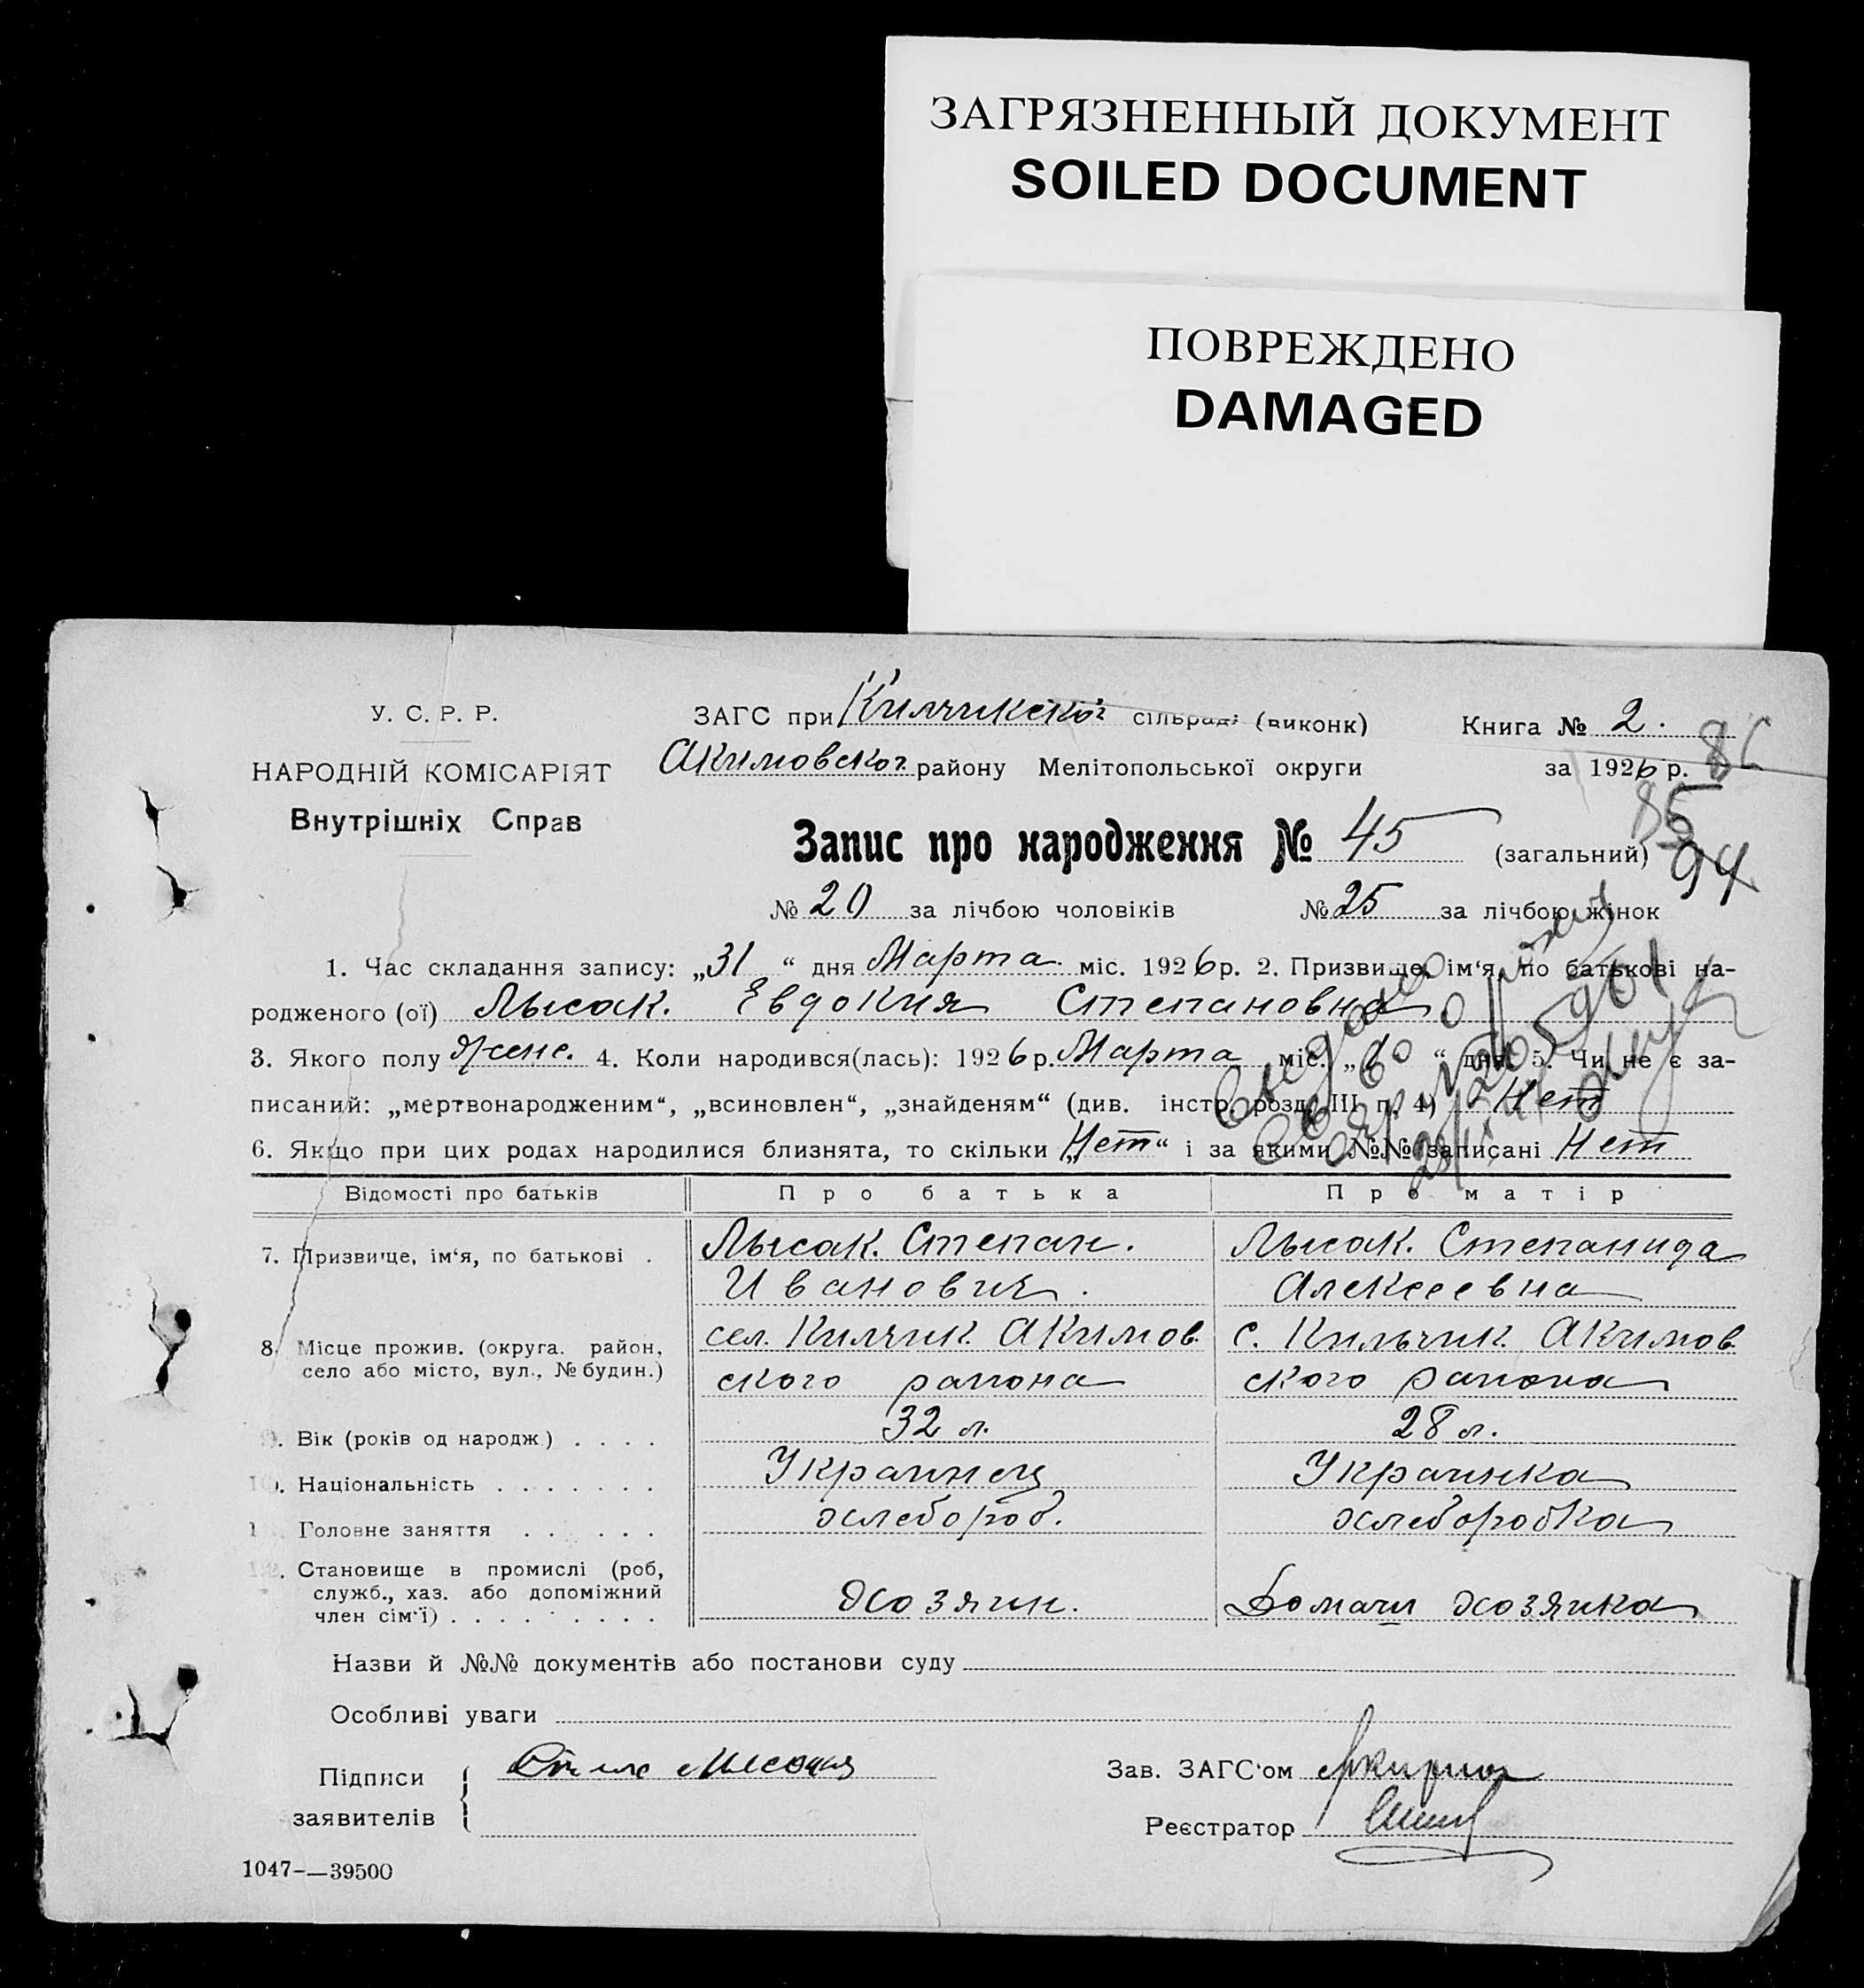 ЗАГРЯЗНЕННЫЙ ДОКУМЕНТ
SOILED DOCUMENT
ПОВРЕЖДЕНО
DAMAGED
У. С. Р. Р.
НАРОДНІЙ КОМІСАРІЯТ
Внутрішніх Справ
ЗАГС при сільраді (виконк)
Книга № 2.
Акимовског. району Мелітопольської округи
за 1926 р.
86
85
94
Запис про народження № 45 (загальний)
№ 20 за лічбою чоловіків № 25 за лічбою жінок
1. Час складання запису: „31“ дня Марта міс. 1926 р. 2. Призвище, ім‘я, по батькові на-
родженого (ої) Лысак. Евдокия Степановна
3. Якого полу Жене. 4. Коли народився(лась): 1926 р. Марта міс. „ “ дня 5. Чи не є за-
писаний: „мертвонародженим“, „всиновлен“, „знайденям“ (див. інстр. розд. III п. 4) Нет
6. Якщо при цих родах народилися близнята, то скільки „Нет“ і за якими №№ записані Нет
Відомості про батьків Про батька Про матір
7. Призвище, ім‘я, по батькові . Лысак. Степан. Лысак. Степанида
Иванович. Алексеевна
8. Місце прожив. (округа. район, село або місто, вул., № будин.) сел. Килчик. Акимов с. Кильчик. Акимов
ского района ского района
9. Вік (років од народж) . . . . 32 л. 28 л.
10. Національність . . . . . . . Украинец Украинка
11. Головне заняття . . . . . хлебороб. хлеборобка
12. Становище в промислі (роб, служб., хаз. або допоміжний член сім‘ї) . . . . . . . . . Хозяин. Домаш хозяйка
Назви й №№ документів або постанови суду
Особливі уваги
Підписи
заявителів
Зав. ЗАГС‘ом
Реєстратор
1047-—39500